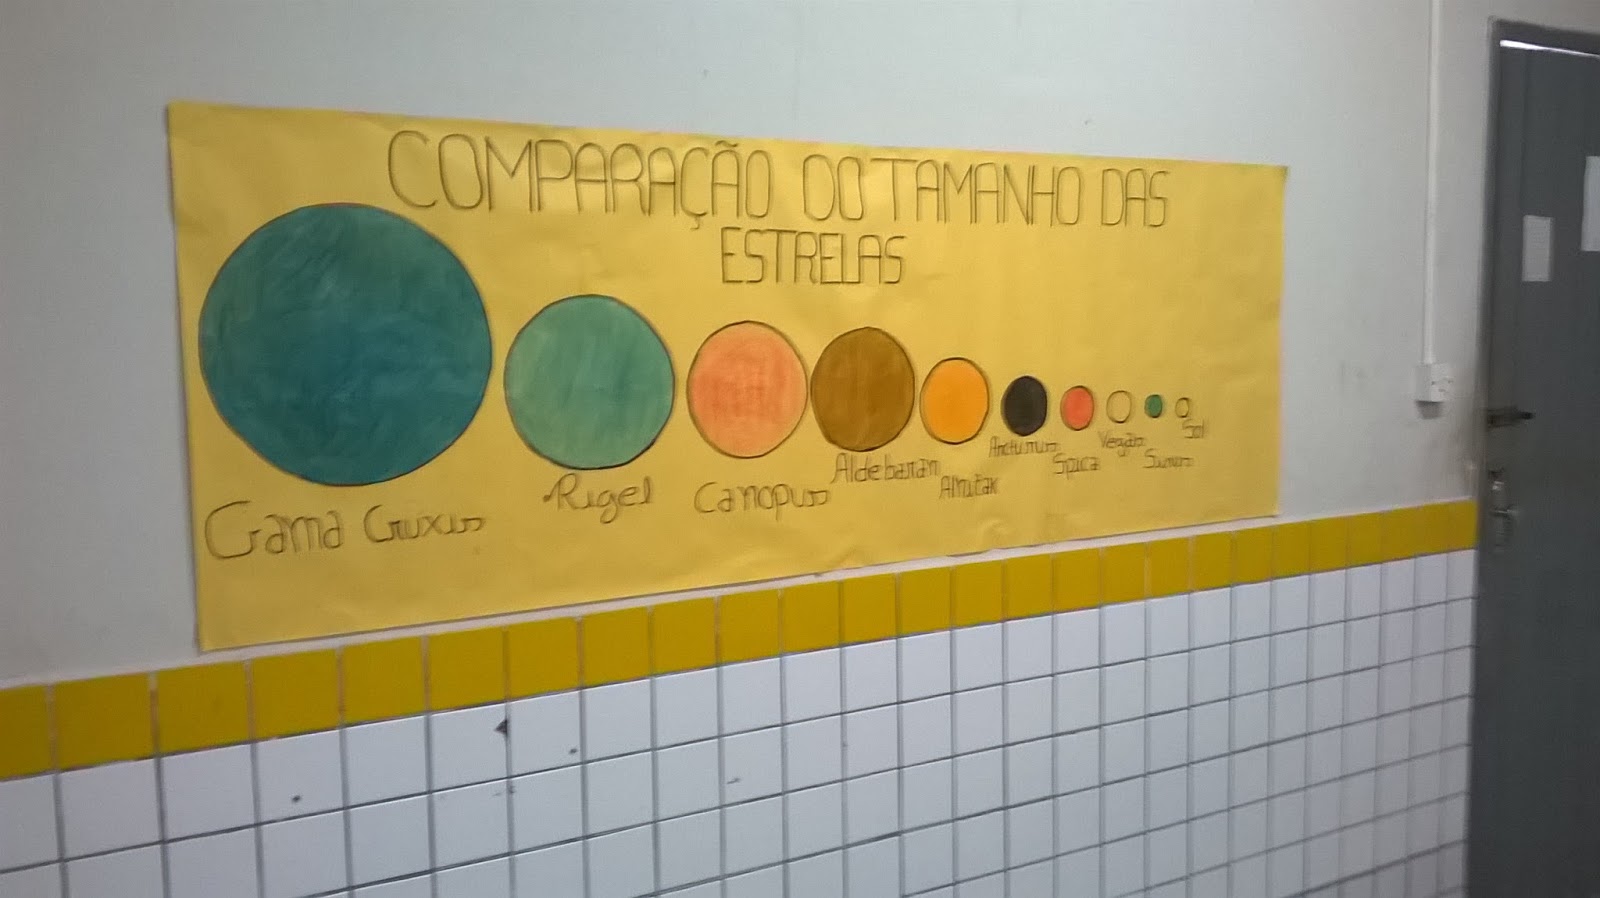 COMPARAÇÃO DO TAMANHO DAS
ESTRELAS
Gama Cruxis
Rigel
Canopus
Aldebaran
Alnitak
Arcturus
Spica
Vega
Sirius
Sol